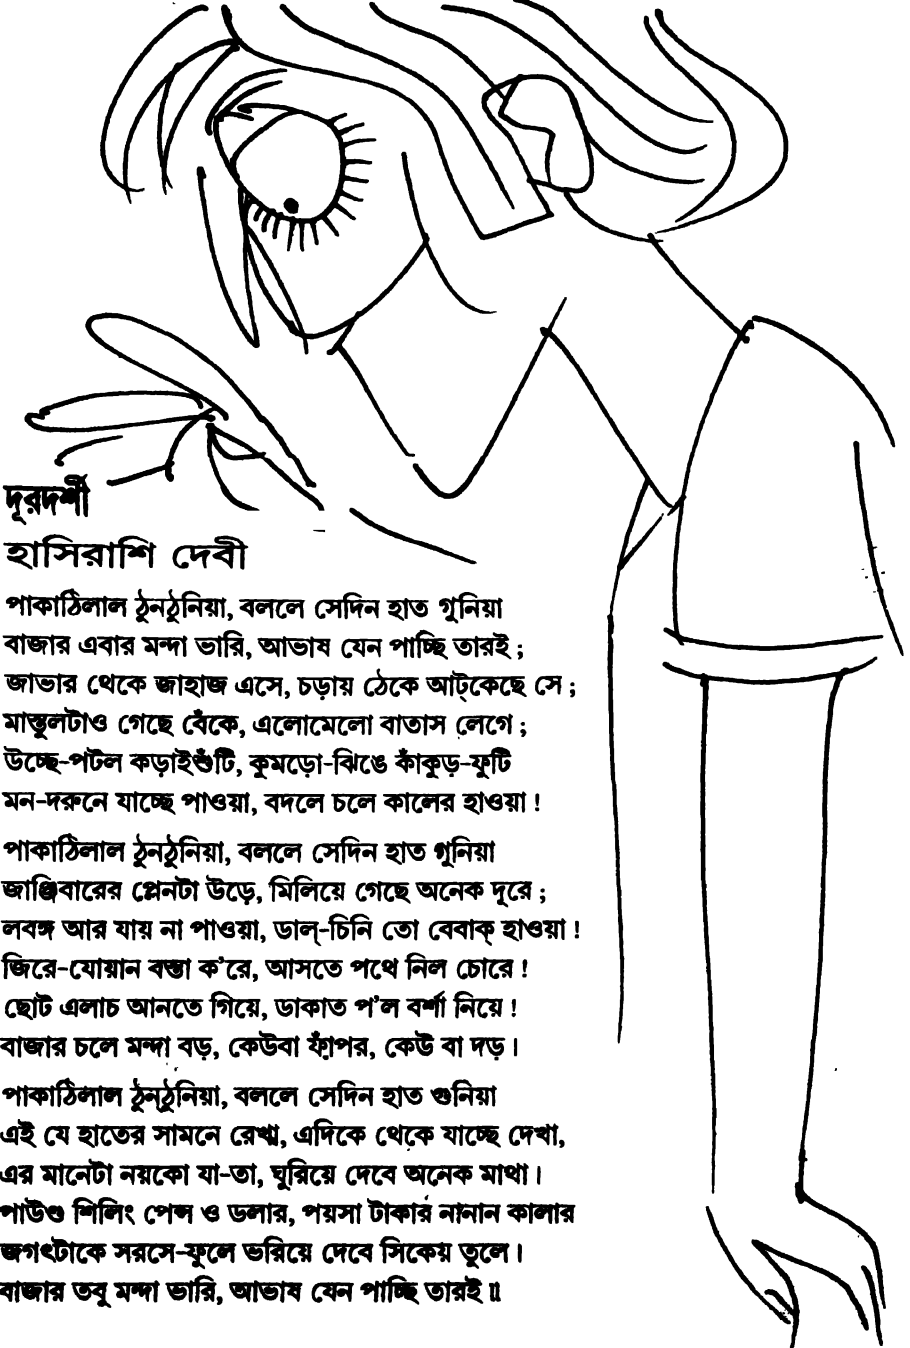 দূরদর্শী
হাসিরাশি দেবী
পাকাঠিলাল ঠুনঠুনিয়া, বললে সেদিন হাত গুনিয়া
বাজার এবার মন্দা ভারি, আভাষ যেন পাচ্ছি তারই ;
জাভার থেকে জাহাজ এসে, চড়ায় ঠেকে আট্‌কেছে সে ;
মাস্তুলটাও গেছে বেঁকে, এলোমেলো বাতাস লেগে ;
উচ্ছে-পটল কড়াইশুঁটি, কুমড়ো-ঝিঙে কাঁকুড়-ফুটি
মন-দরুনে যাচ্ছে পাওয়া, বদলে চলে কালের হাওয়া !
পাকাঠিলাল ঠুনঠুনিয়া, বললে সেদিন হাত গুনিয়া
জাঞ্জিবারের প্লেনটা উড়ে, মিলিয়ে গেছে অনেক দূরে ;
লবঙ্গ আর যায় না পাওয়া, ডাল্‌-চিনি তো বেবাক্‌ হাওয়া !
জিরে-যোয়ান বস্তা ক'রে, আসতে পথে নিল চোরে !
ছোট এলাচ আনতে গিয়ে, ডাকাত প'ল বর্শা নিয়ে !
বাজার চলে মন্দা বড়, কেউবা ফাঁপর, কেউ বা দড় ।
পাকাঠিলাল ঠুন্‌ঠুনিয়া, বললে সেদিন হাত গুনিয়া
এই যে হাতের সামনে রেখা, এদিকে থেকে যাচ্ছে দেখা,
এর মানেটা নয়কো যা-তা, ঘুরিয়ে দেবে অনেক মাথা ।
পাউণ্ড শিলিং পেন্স ও ডলার, পয়সা টাকার নানান কালার
জগৎটাকে সরসে-ফুলে ভরিয়ে দেবে সিকেয় তুলে ।
বাজার তবু মন্দা ভারি, আভাষ যেন পাচ্ছি তারই ॥